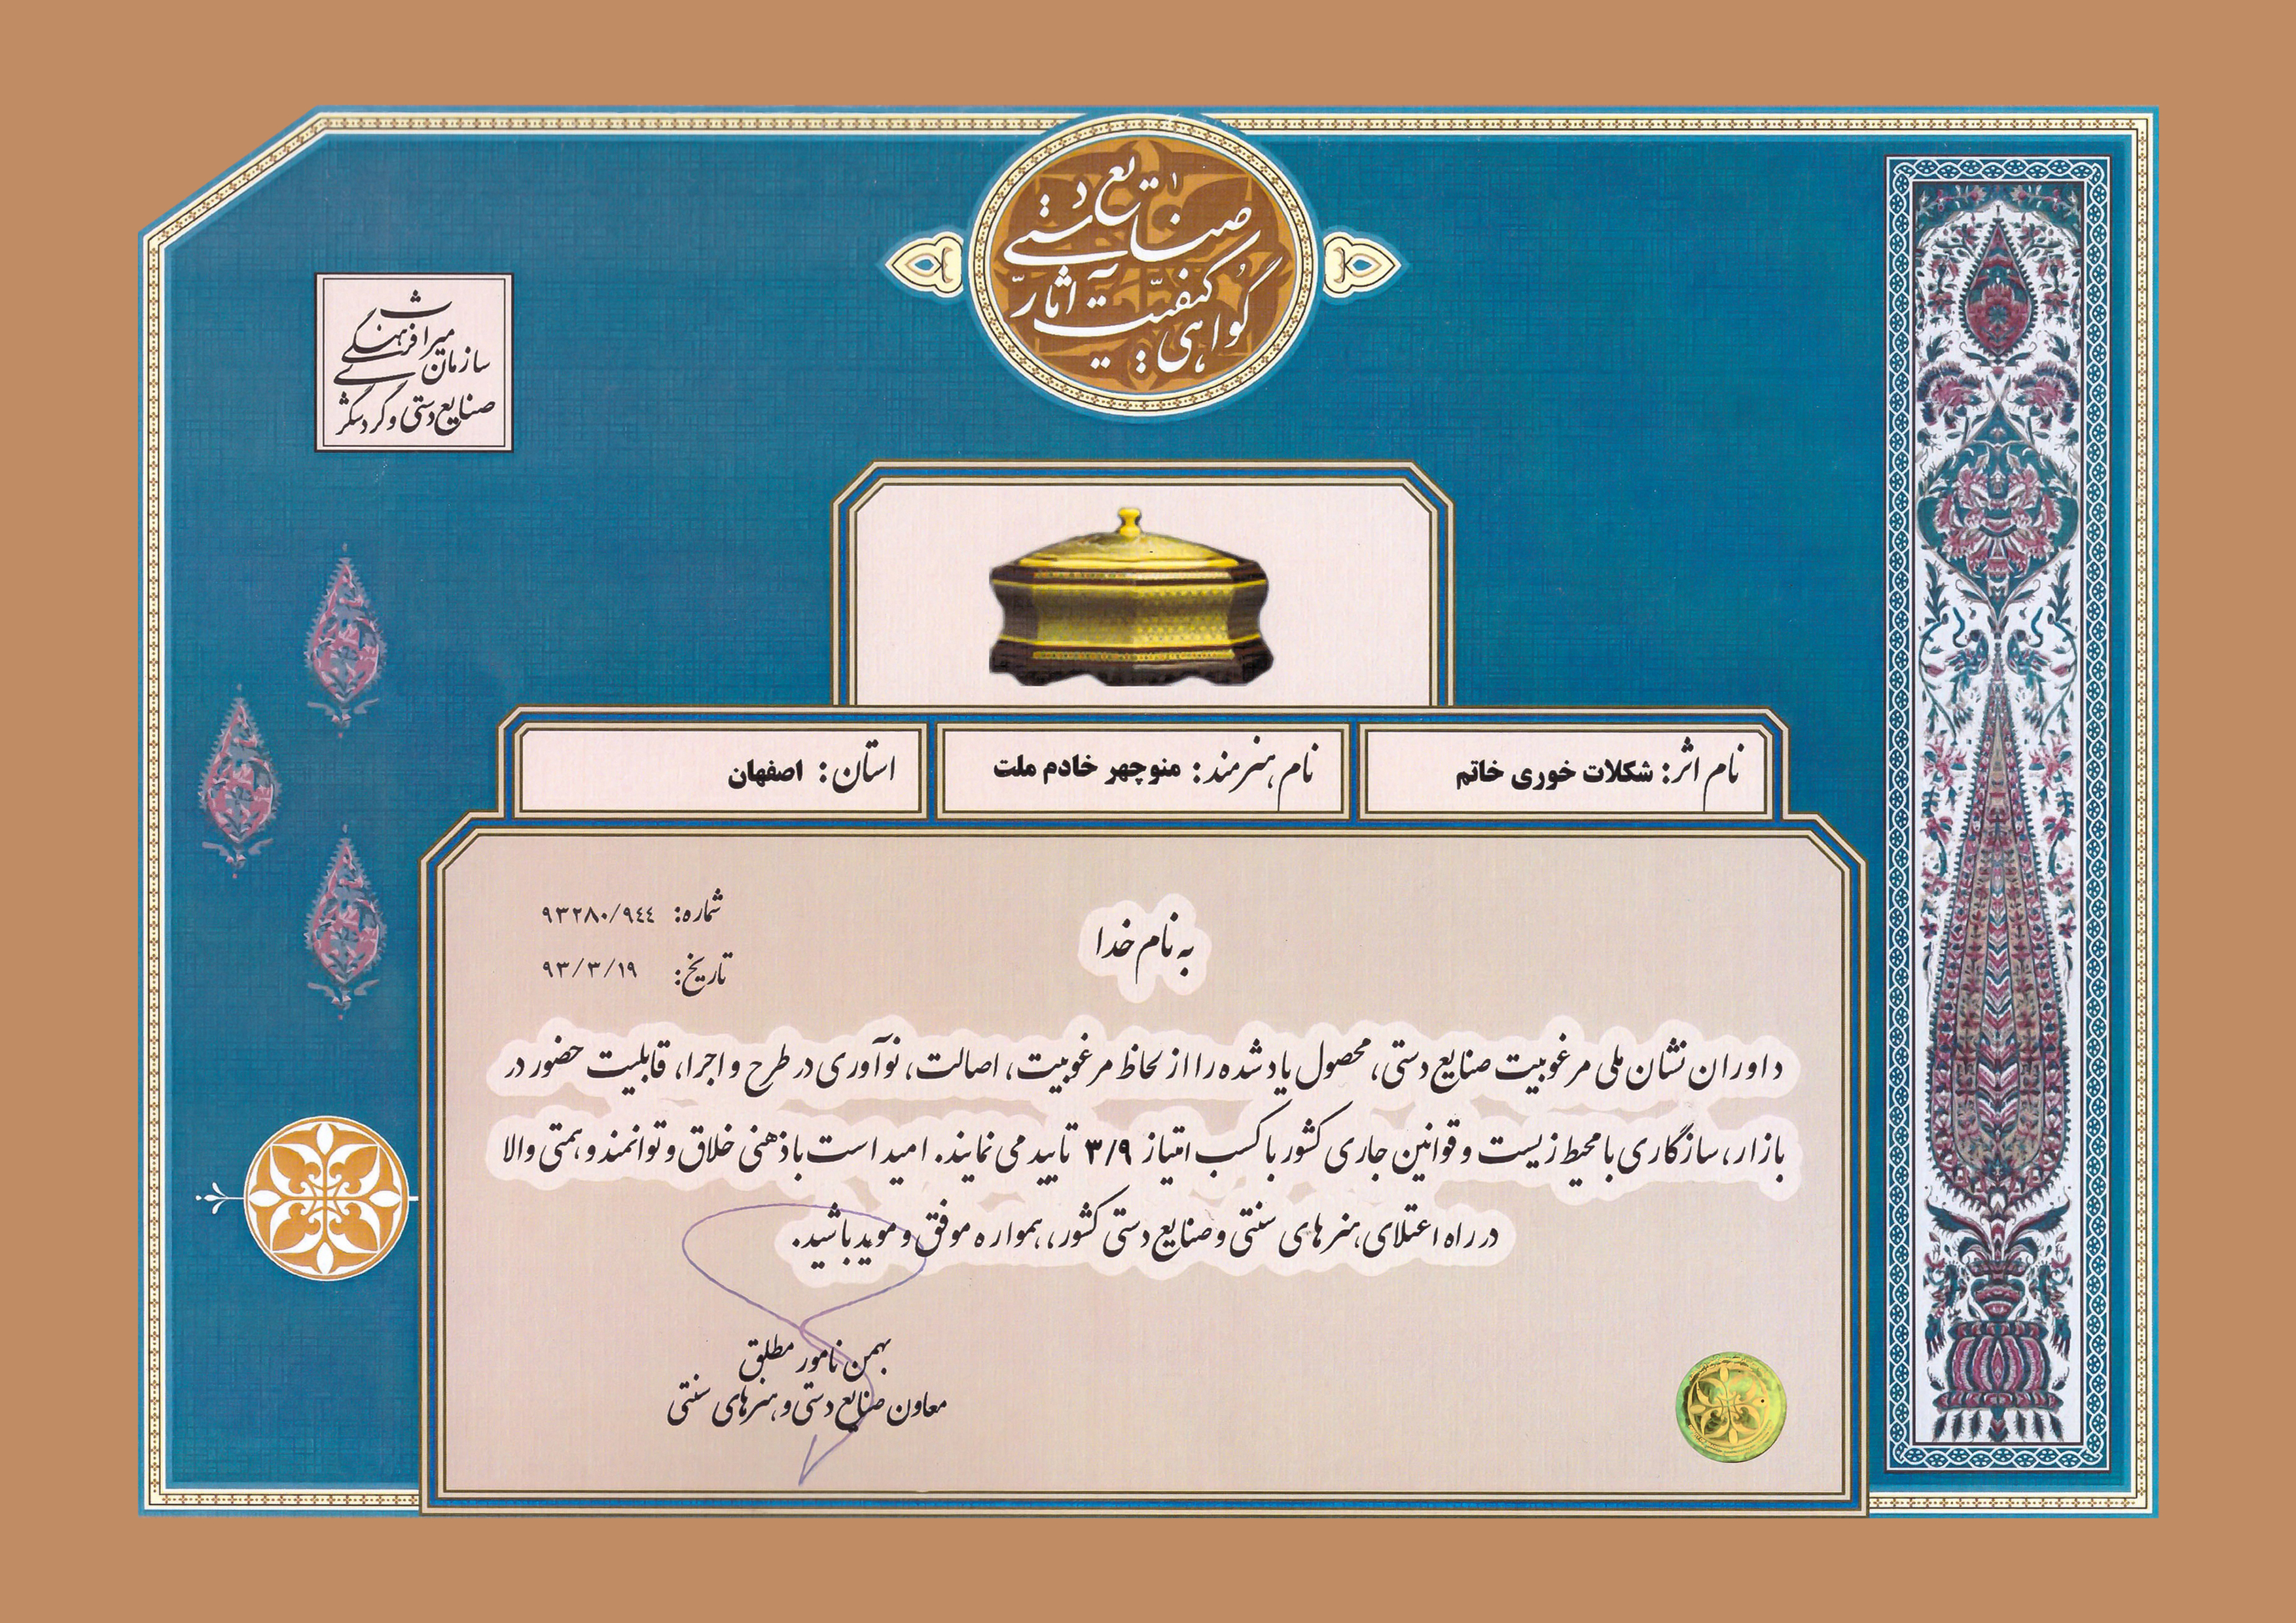 گواهی کیفیت آثار صنایع دستی
سازمان میراث فرهنگی
صنایع دستی و گردشگری
نام اثر: شکلات خوری خاتم
نام هنرمند: منوچهر خادم ملت
استان: اصفهان
به نام خدا
شماره: ۹۳۲۸۰/۹٤٤
تاریخ: ۹۳/۳/۱۹
داوران نشان ملی مرغوبیت صنایع دستی، محصول یاد شده را از لحاظ مرغوبیت، اصالت، نوآوری در طرح و اجرا، قابلیت حضور در
بازار، سازگاری با محیط زیست و قوانین جاری کشور با کسب امتیاز ۳/۹ تایید می نمایند. امید است با ذهنی خلاق و توانمند و همتی والا
در راه اعتلای هنرهای سنتی و صنایع دستی کشور، همواره موفق و موید باشید.
بهمن نامور مطلق
معاون صنایع دستی و هنرهای سنتی